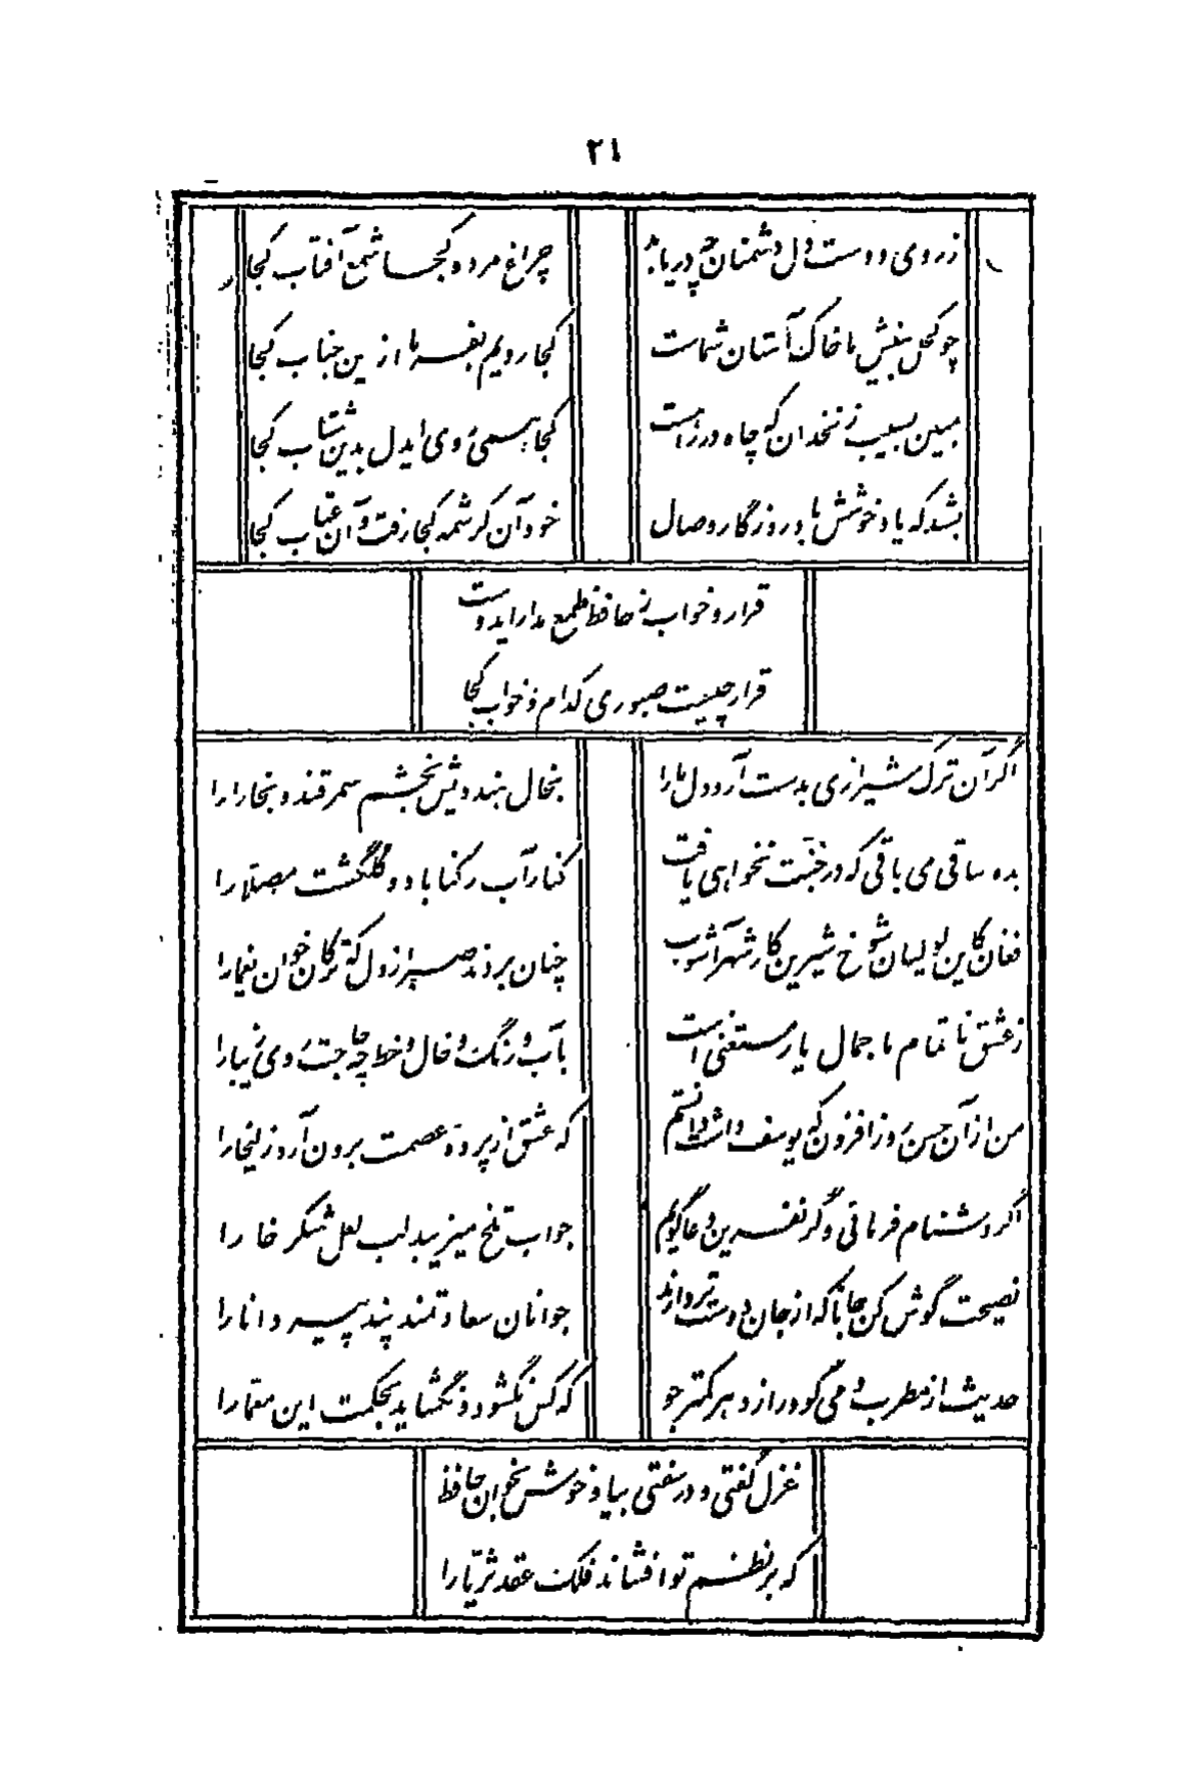 ۲۱
ز روی دوست دل دشمنان چه دریابد
چراغ مرده کجا شمع آفتاب کجا
چو کحل بینش ما خاک آستان شماست
کجا رویم بفرما ازین جناب کجا
مبین بسیب زنخدان که چاه در راهست
کجا همی روی ایدل بدین شتاب کجا
بشد که یاد خوشش باد روزگار وصال
خود آن کرشمه کجا رفت و آن عتاب کجا
قرار و خواب ز حافظ طمع مدار ایدوست
قرار چیست صبوری کدام و خواب کجا
اگر آن ترک شیرازی بدست آرد دل ما را
بخال هندویش بخشم سمرقند و بخارا را
بده ساقی می باقی که در جنت نخواهی یافت
کنار آب رکناباد و گلگشت مصلا را
فغان کاین لولیان شوخ شیرین کار شهرآشوب
چنان بردند صبر از دل که ترکان خوان یغما را
ز عشق ناتمام ما جمال یار مستغنی است
بآب و رنگ و خال و خط چه حاجت روی زیبا را
من از آن حسن روزافزون که یوسف داشت دانستم
که عشق از پرده عصمت برون آرد زلیخا را
اگر دشنام فرمائی وگر نفرین دعا گویم
جواب تلخ میزیبد لب لعل شکرخا را
نصیحت گوش کن جانا که از جان دوست‌تر دارند
جوانان سعادتمند پند پیر دانا را
حدیث از مطرب و می گو و راز دهر کمتر جو
که کس نگشود و نگشاید بحکمت این معما را
غزل گفتی و در سفتی بیا و خوش بخوان حافظ
که بر نظم تو افشاند فلک عقد ثریا را